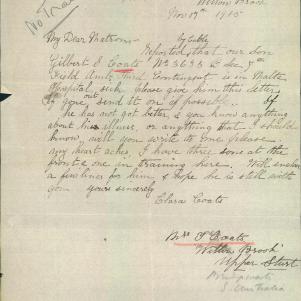 No Trace
Willow Brook
Nov 17th 1915
My Dear Matron— by Cable
Reported that our son
Gilbert S. Coats No 3633 to Sec 7th
Field Amb. Third Contingent is in Malta
Hospital sick please give him this letter
If gone send it on if possible. If
he has not got better, & you know anything
about his illness, or anything that I should
know will you write to me please.
my heart aches, I have three sons at the
front & one in training here. Will enclose
a few lines for him, & hope he is still with
you. yours sincerely
Clara Coats
Mrs T Coats
Willow Brook
Upper Sturt
S. Australia